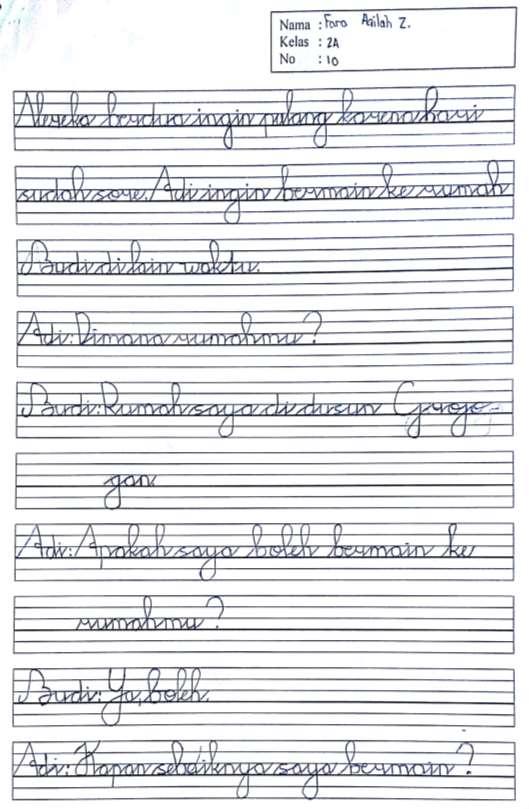 Nama : Fara Aqilah Z.
Kelas : 2A
No : 10
Mereka berdua ingin pulang karena hari
sudah sore. Adi ingin bermain ke rumah
Budi di lain waktu.
Adi: Dimana rumahmu?
Budi: Rumah saya di dusun Grojo-
gan
Adi: Apakah saya boleh bermain ke
rumahmu?
Budi: Ya, boleh.
Adi: Kapan sebaiknya saya bermain?